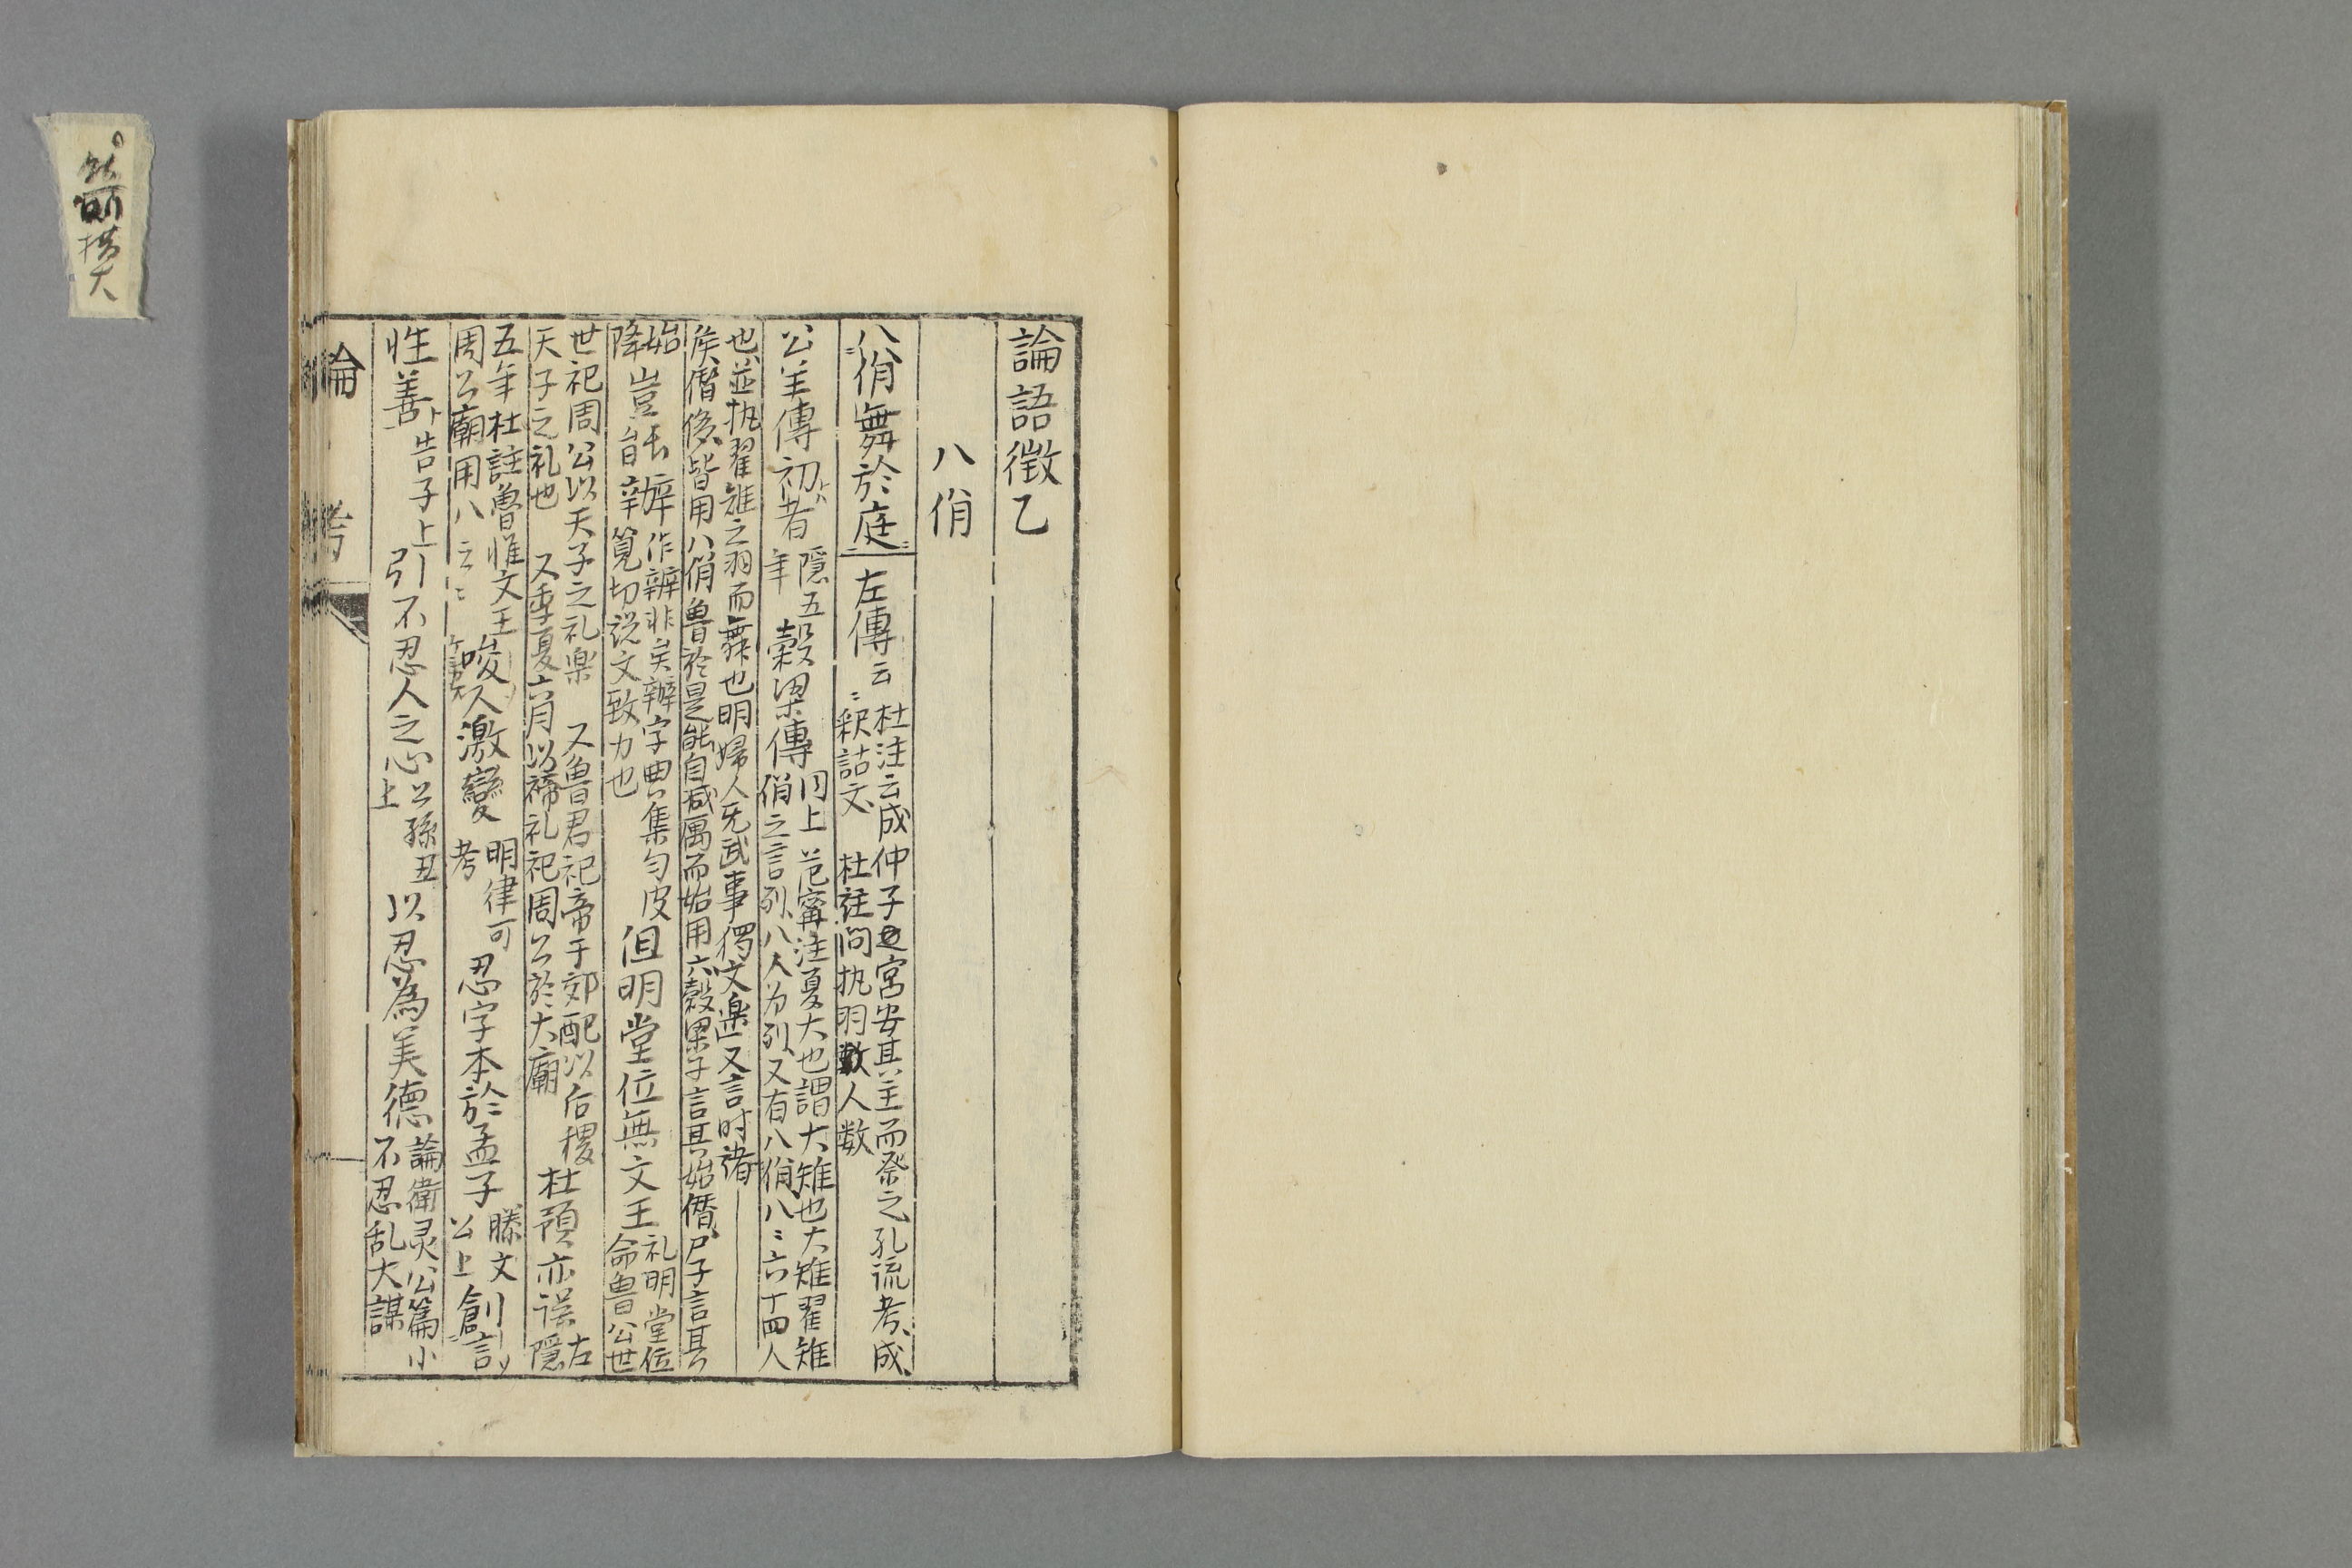 論語徴乙
八佾
八佾舞於庭 左傳云〻
杜注云成仲子之宮安其主而祭之孔疏考成
釈詁文 杜註問執羽数人数
公羊傳初者 隠五年 穀梁傳
同上 范甯注夏大也謂大雉也大雉翟雉
佾之言列八人为列又有八佾八〻六十四人
也並执翟雉之羽而舞也明婦人无武事獨文楽 又言时諸
矦僭侈皆用八佾魯於是能自减厲而始用六穀梁子言其始僭尸子言其
始降 豈能辨
作辨非矣辨字典集匀皮
筧切説文致力也
但明堂位無文王
礼明堂位
命魯公世
世祀周公以天子之礼楽 又魯君祀帝于郊配以后稷
天子之礼也 又季夏六月以禘礼祀周公於大廟
杜預亦誤
左隠
五年杜註魯惟文王
周公廟用八云〻
唆人激變
明律可考
忍字本於孟子
滕文公上
創言
性善
告子上
引不忍人之心
公孫丑上
以忍為美德
論衛灵公篇小
不忍乱大謀
論
考
横大